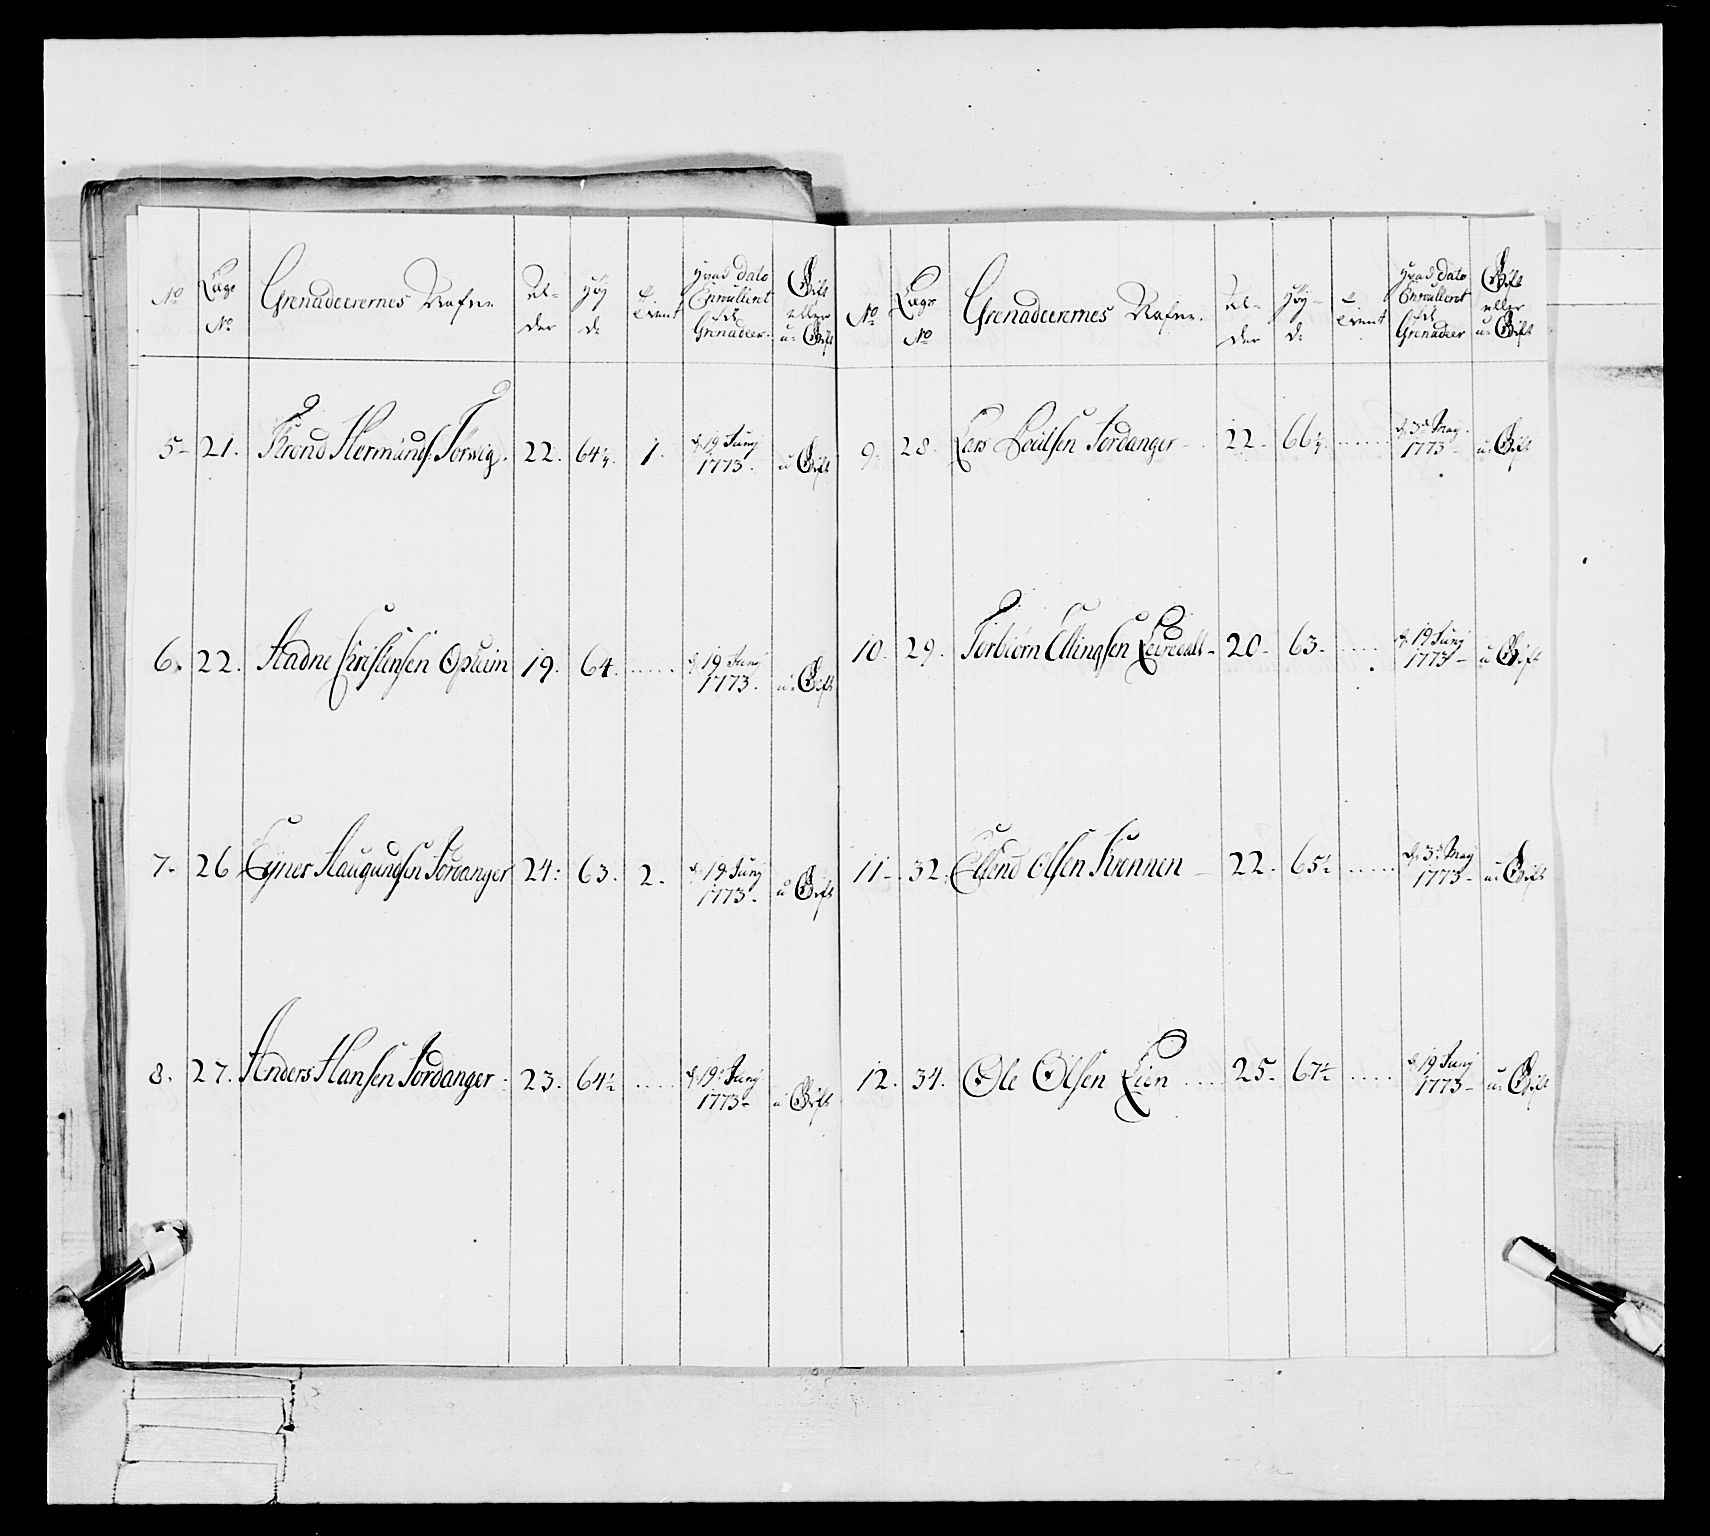 No Lægs No Grenadeerernes Nafne Al-der Høy d: Tient Hvad Dato Enrullent til Grenadeer. Gift eller u: Gift
5- 21. Trond Hermunds: Torvig. 22. 64¼. 1. d: 19 Junÿ 1773. u Gift
6. 22. Aadne Christensen Opheim 19. 64. ..... d: 19 Junÿ 1773. u: Gift
7- 26 Eÿner Haugundsen Jordanger 24: 63. 2. d: 19 Junÿ 1773. u Gift
8. 27. Anders Hansen Jordanger - 23. 64½ ..... d: 19 Junÿ 1773- u Gift
No Lægs No Grenadeerernes Nafne. Al-der Høy- d: Tient Hvad Dato Enrullent til Grenadeer Gift eller u: Gift
9. 28. Lars Poulsen Jordanger - 22- 66¼. ..... d: 3d May 1773- u: Gift
10. 29. Torbiörn Ellingsen Leiredalt- 20- 63- ..... d: 19 Junÿ 1773- u Gift
11-. 32. Ellend Olsen Kvennen - 22- 65½ ..... d: 3d May 1773- u: Gift
12. 34. Ole Olsen Lien .... 25- 67½ ..... d: 19 Junÿ 1773- u: Gift